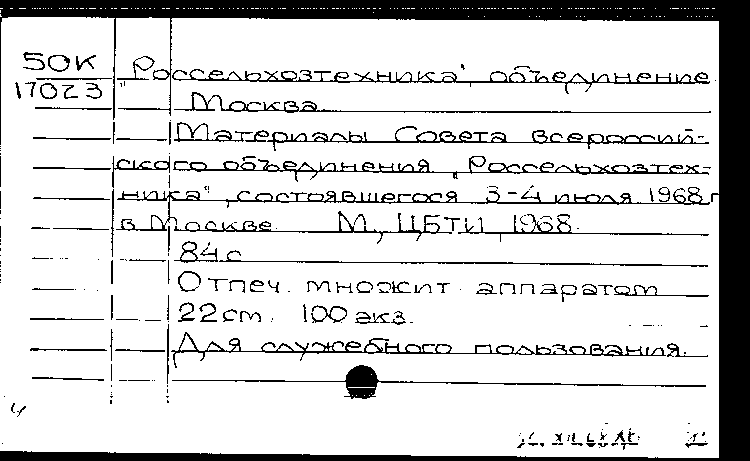 50К
17023
"Россельхозтехника", объединение.
Москва.
Материалы Совета Всероссий-
ского объединения „Россельхозтех-
ника", состоявшегося 3-4 июля 1968 г
в Москве. М., ЦБТИ, 1968.
84 с
Отпеч. множит. аппаратом
22 см. 100 экз.
Для служебного пользования.
4